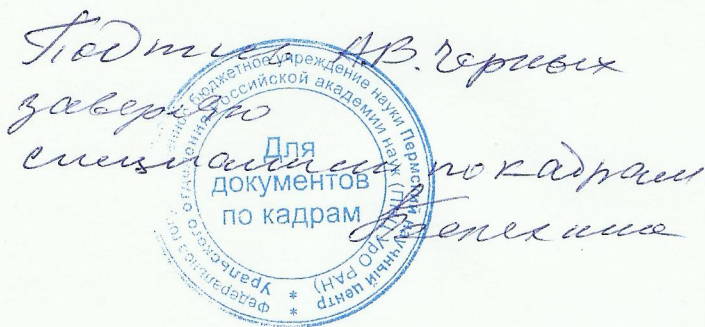 Подпись А.В. Черных
заверяю
специалист по кадрам
Федеральное государственное бюджетное учреждение науки Пермский научный центр
Уральского отделения Российской академии наук (ПНЦ УрО РАН)
Для
документов
по кадрам